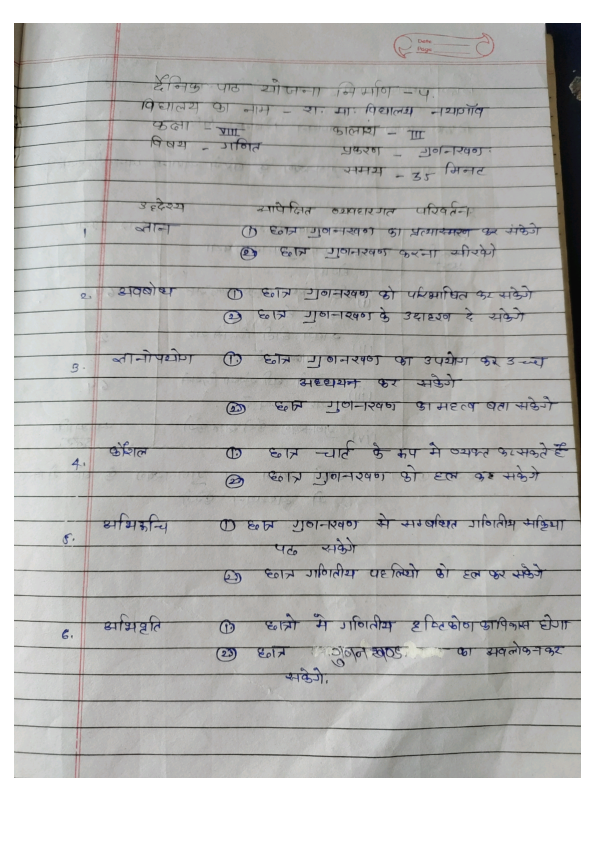 Date
Page
दैनिक पाठ योजना निर्माण - 5.
विद्यालय का नाम - रा. मा. विद्यालय नयागाँव
कक्षा - VIII कालांश - III
विषय - गणित प्रकरण - गुणनखण्ड
समय - 35 मिनट
उद्देश्य अपेक्षित व्यवहारगत परिवर्तन
1. ज्ञान (1) छात्र गुणनखण्ड का प्रत्यास्मरण कर सकेगे
(2) छात्र गुणनखण्ड करना सीखेगे
2. अवबोध (1) छात्र गुणनखण्ड को परिभाषित कर सकेगे
(2) छात्र गुणनखण्ड के उदाहरण दे सकेगे
3. ज्ञानोपयोग (1) छात्र गुणनखण्ड का उपयोग कर उच्च
अध्ययन कर सकेगे
(2) छात्र गुणनखण्ड का महत्व बता सकेगे
4. कौशल (1) छात्र चार्ट के रूप मे व्यक्त कर सकते हैं
(2) छात्र गुणनखण्ड को हल कर सकेगे
5. अभिरूचि (1) छात्र गुणनखण्ड से सम्बन्धित गणितीय सक्रिया
पढ सकेगे
(2) छात्र गणितीय पहलियो को हल कर सकेगे
6. अभिवृति (1) छात्रो मे गणितीय दृष्टिकोण का विकास होगा
(2) छात्र गुणनखण्ड का अवलोकन कर
सकेगे.